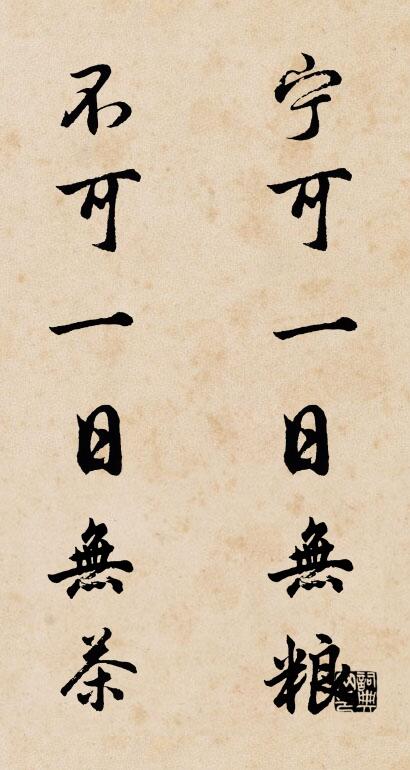 宁可一日無粮
不可一日無茶